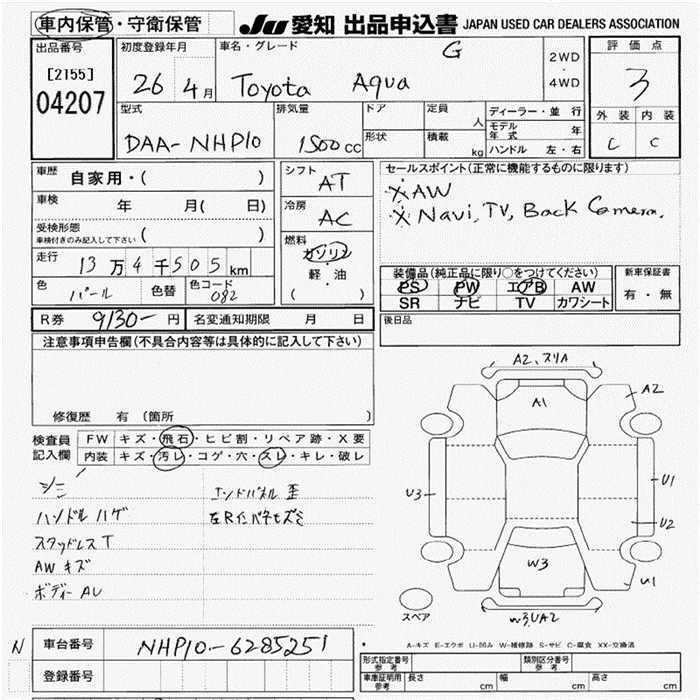 車内保管・守衛保管
JU 愛知 出品申込書 JAPAN USED CAR DEALERS ASSOCIATION
出品番号
[2155]
04207
初度登録年月
26 4月
車名・グレード
Toyota Aqua G
2WD
・
4WD
評価点
3
外装 内装
C C
型式
DAA-NHP10
排気量
1500cc
ドア
形状
定員
人
積載
kg
ディーラー・並行
モデル年式 年
ハンドル 左・右
車歴
自家用・( )
車検
年 月( 日)
受検形態
車検付きのみ記入して下さい ( )
走行
13万4千505km
色
パール
色替
色コード
082
シフト
AT
冷房
AC
燃料
ガソリン
軽・油
( )
セールスポイント(正常に機能するものに限ります)
※AW
※Navi, TV, Back Camera.
装備品(純正品に限り○をつけてください)
PS PW エアB AW
SR ナビ TV カワシート
新車保証書
有・無
R券 9130- 円
名変通知期限 月 日
後日品
注意事項申告欄(不具合内容等は具体的に記入して下さい)
修復歴 有 (箇所
検査員
記入欄
FW キズ・飛石・ヒビ割・リペア跡・X要
内装 キズ・汚レ・コゲ・穴・スレ・キレ・破レ
シミ
ハンドルハゲ
スタッドレスT
AWキズ
ボディーAU
エンドパネル歪
左Rインパネヒズミ
A2、スリA
A1
A2
U3
U1
U2
W3
U1
W3UA2
スペア
A-キズ E-エクボ U-凹み W-補修跡 S-サビ C-腐食 XX-交換済
N
車台番号
NHP10-6285251
登録番号
形式指定番号
参考
類別区分番号
参考
車庫証明用
参考
長さ cm
幅 cm
高さ cm